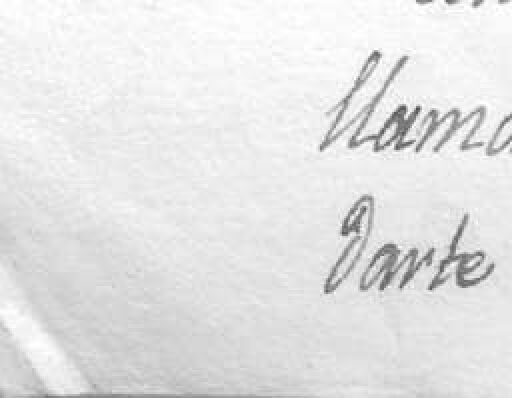 llama
Darte